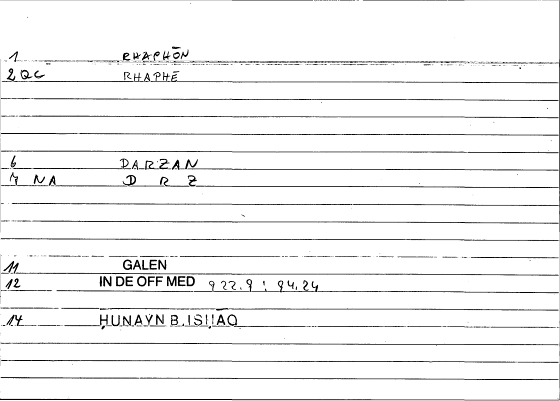 1 RHAPHŌN
2 QC RHAPHĒ
6 DARZAN
7 NA D R Z
11 GALEN
12 IN DE OFF MED 922.9 : 94.24
14 ḤUNAYN B. ISḤĀQ